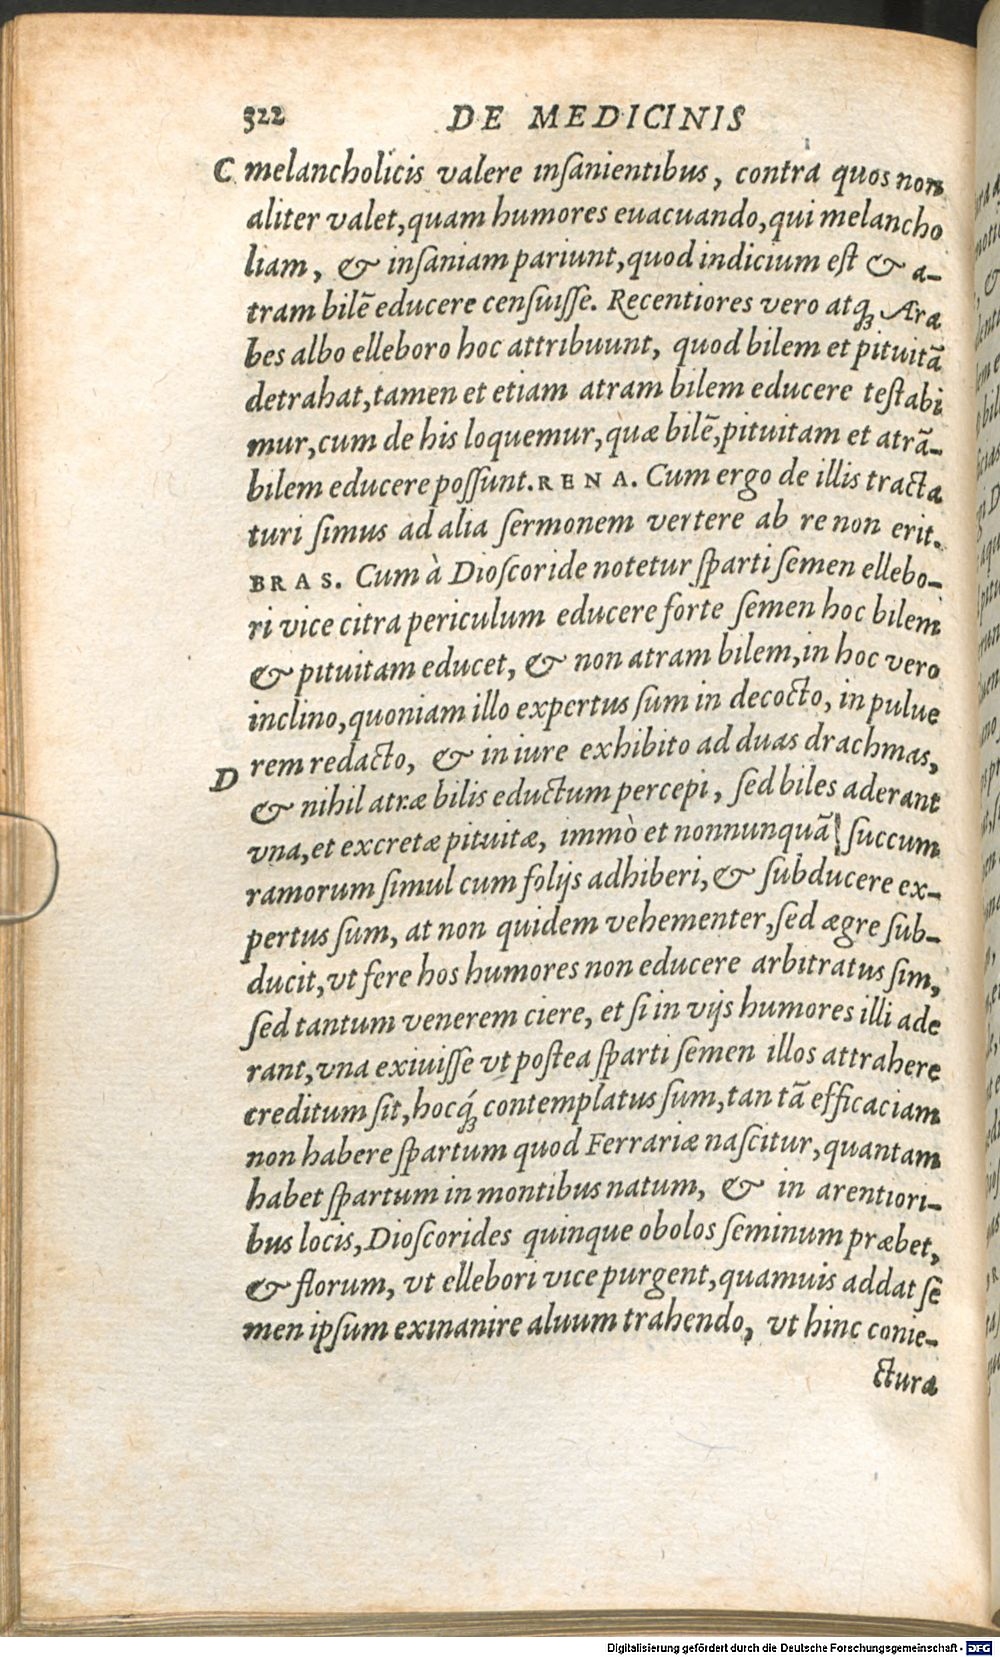 322 DE MEDICINIS
C melancholicis valere insanientibus, contra quos non
aliter valet, quam humores euacuando, qui melancho
liam, & insaniam pariunt, quod indicium est & a-
tram bilē educere censuisse. Recentiores vero atqꝫ Ara
bes albo elleboro hoc attribuunt, quod bilem et pituitā
detrahat, tamen et etiam atram bilem educere testabi
mur, cum de his loquemur, quæ bilē, pituitam et atrā-
bilem educere possunt. RENA. Cum ergo de illis tracta
turi simus ad alia sermonem vertere ab re non erit.
BRAS. Cum à Dioscoride notetur sparti semen ellebo-
ri vice citra periculum educere forte semen hoc bilem
& pituitam educet, & non atram bilem, in hoc vero
inclino, quoniam illo expertus sum in decocto, in pulue
rem redacto, & in iure exhibito ad duas drachmas,
D & nihil atræ bilis eductum percepi, sed biles aderant
vna, et excretæ pituitæ, immò et nonnunquā succum
ramorum simul cum folijs adhiberi, & subducere ex-
pertus sum, at non quidem vehementer, sed ægre sub-
ducit, vt fere hos humores non educere arbitratus sim,
sed tantum venerem ciere, et si in vijs humores illi ade
rant, vna exiuisse vt postea sparti semen illos attrahere
creditum sit, hocqꝫ́ contemplatus sum, tan tā efficaciam
non habere spartum quod Ferrariæ nascitur, quantam
habet spartum in montibus natum, & in arentiori-
bus locis, Dioscorides quinque obolos seminum præbet,
& florum, vt ellebori vice purgent, quamuis addat se
men ipsum exinanire aluum trahendo, vt hinc conie-
ctura
Digitalisierung gefördert durch die Deutsche Forschungsgemeinschaft - DFG